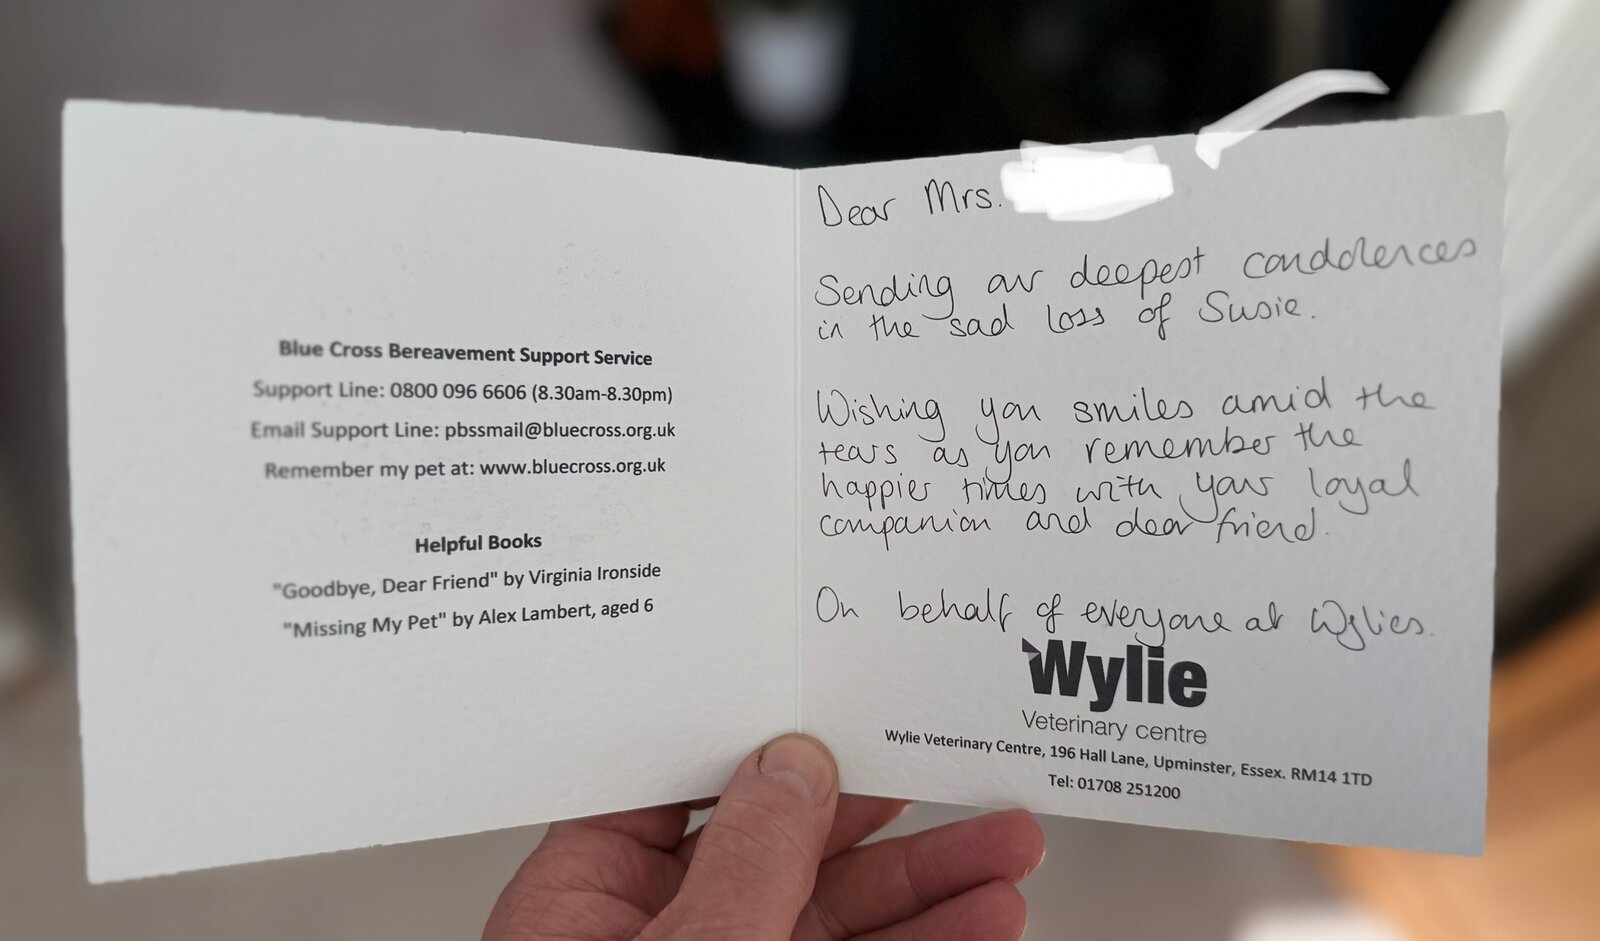 Blue Cross Bereavement Support Service
Support Line: 0800 096 6606 (8.30am-8.30pm)
Email Support Line: pbssmail@bluecross.org.uk
Remember my pet at: www.bluecross.org.uk
Helpful Books
"Goodbye, Dear Friend" by Virginia Ironside
"Missing My Pet" by Alex Lambert, aged 6
Dear Mrs.
Sending our deepest condolences
in the sad loss of Susie.
Wishing you smiles amid the
tears as you remember the
happier times with your loyal
companion and dear friend.
On behalf of everyone at Wylies.
Wylie
Veterinary centre
Wylie Veterinary Centre, 196 Hall Lane, Upminster, Essex. RM14 1TD
Tel: 01708 251200